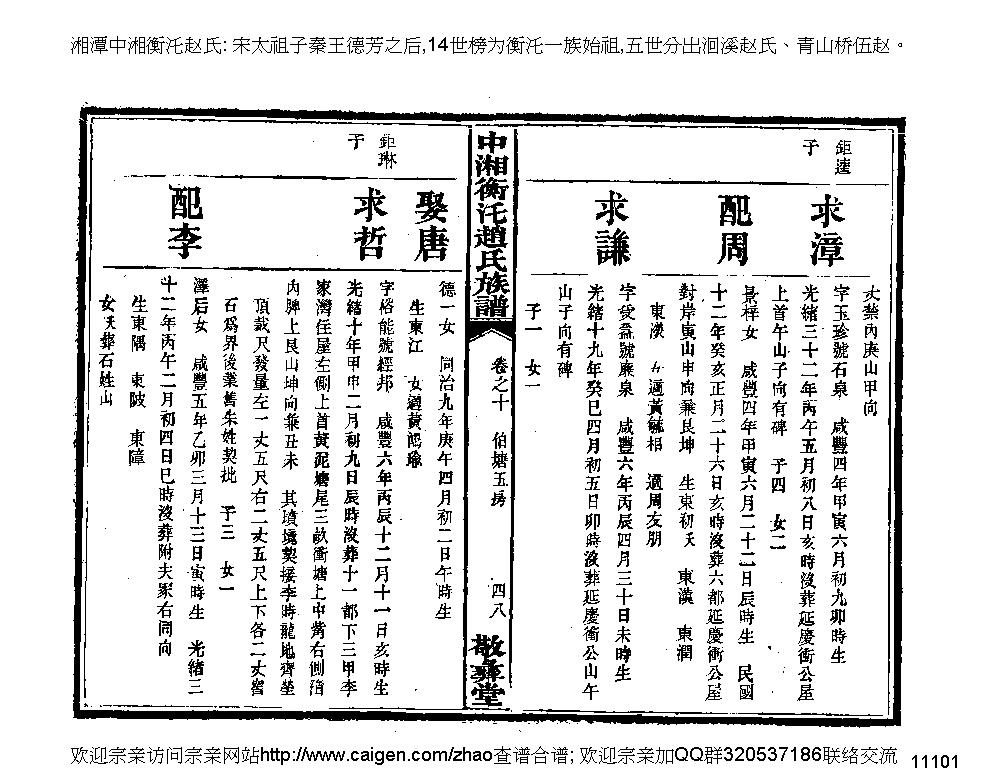 湘潭中湘衡沱赵氏: 宋太祖子秦王德芳之后,14世榜为衡沱一族始祖,五世分出洄溪赵氏、青山桥伍赵。
鉅達
子
丈禁內庚山申向
求漳
字玉珍號石泉 咸豐四年甲寅六月初九卯時生
光緒三十二年丙午五月初八日亥時沒葬延慶衝公屋
上首午山子向有碑 子四 女二
配周
景祥女 咸豐四年甲寅六月二十二日辰時生 民國
十二年癸亥正月二十六日亥時沒葬六都延慶衝公屋
對岸寅山申向兼艮坤 生東初夭 東漢 東潤
東漢 女適黃毓相 適周友朋
求謙
字發益號廉泉 咸豐六年丙辰四月三十日未時生
光緒十九年癸巳四月初五日卯時沒葬延慶衝公山午
山子向有碑
子一 女一
中湘衡沱趙氏族譜
卷之十 伯塘五房
四八
敬彝堂
娶唐
德一女 同治九年庚午四月初二日午時生
生東江 女適黃鴻瑑
鉅琳
子
求哲
字裕能號經邦 咸豐六年丙辰十二月十一日亥時生
光緒十年甲申二月初九日辰時沒葬十一都下三甲李
家灣任屋左側上首黃泥塘尾三畝衝塘上中嘴右側猪
內脾上艮山坤向兼丑未 其墳塋契接李時龍地齊塋
頂裁尺發量左一丈五尺右二丈五尺上下各二丈窖
石爲界後業舊朱姓契批 子三 女一
配李
澤后女 咸豐五年乙卯三月十三日寅時生 光緒三
十二年丙午二月初四日巳時沒葬附夫冢右同向
生東隅 東陂 東障
女夭葬石姓山
欢迎宗亲访问宗亲网站http://www.caigen.com/zhao查谱合谱; 欢迎宗亲加QQ群320537186联络交流
11101